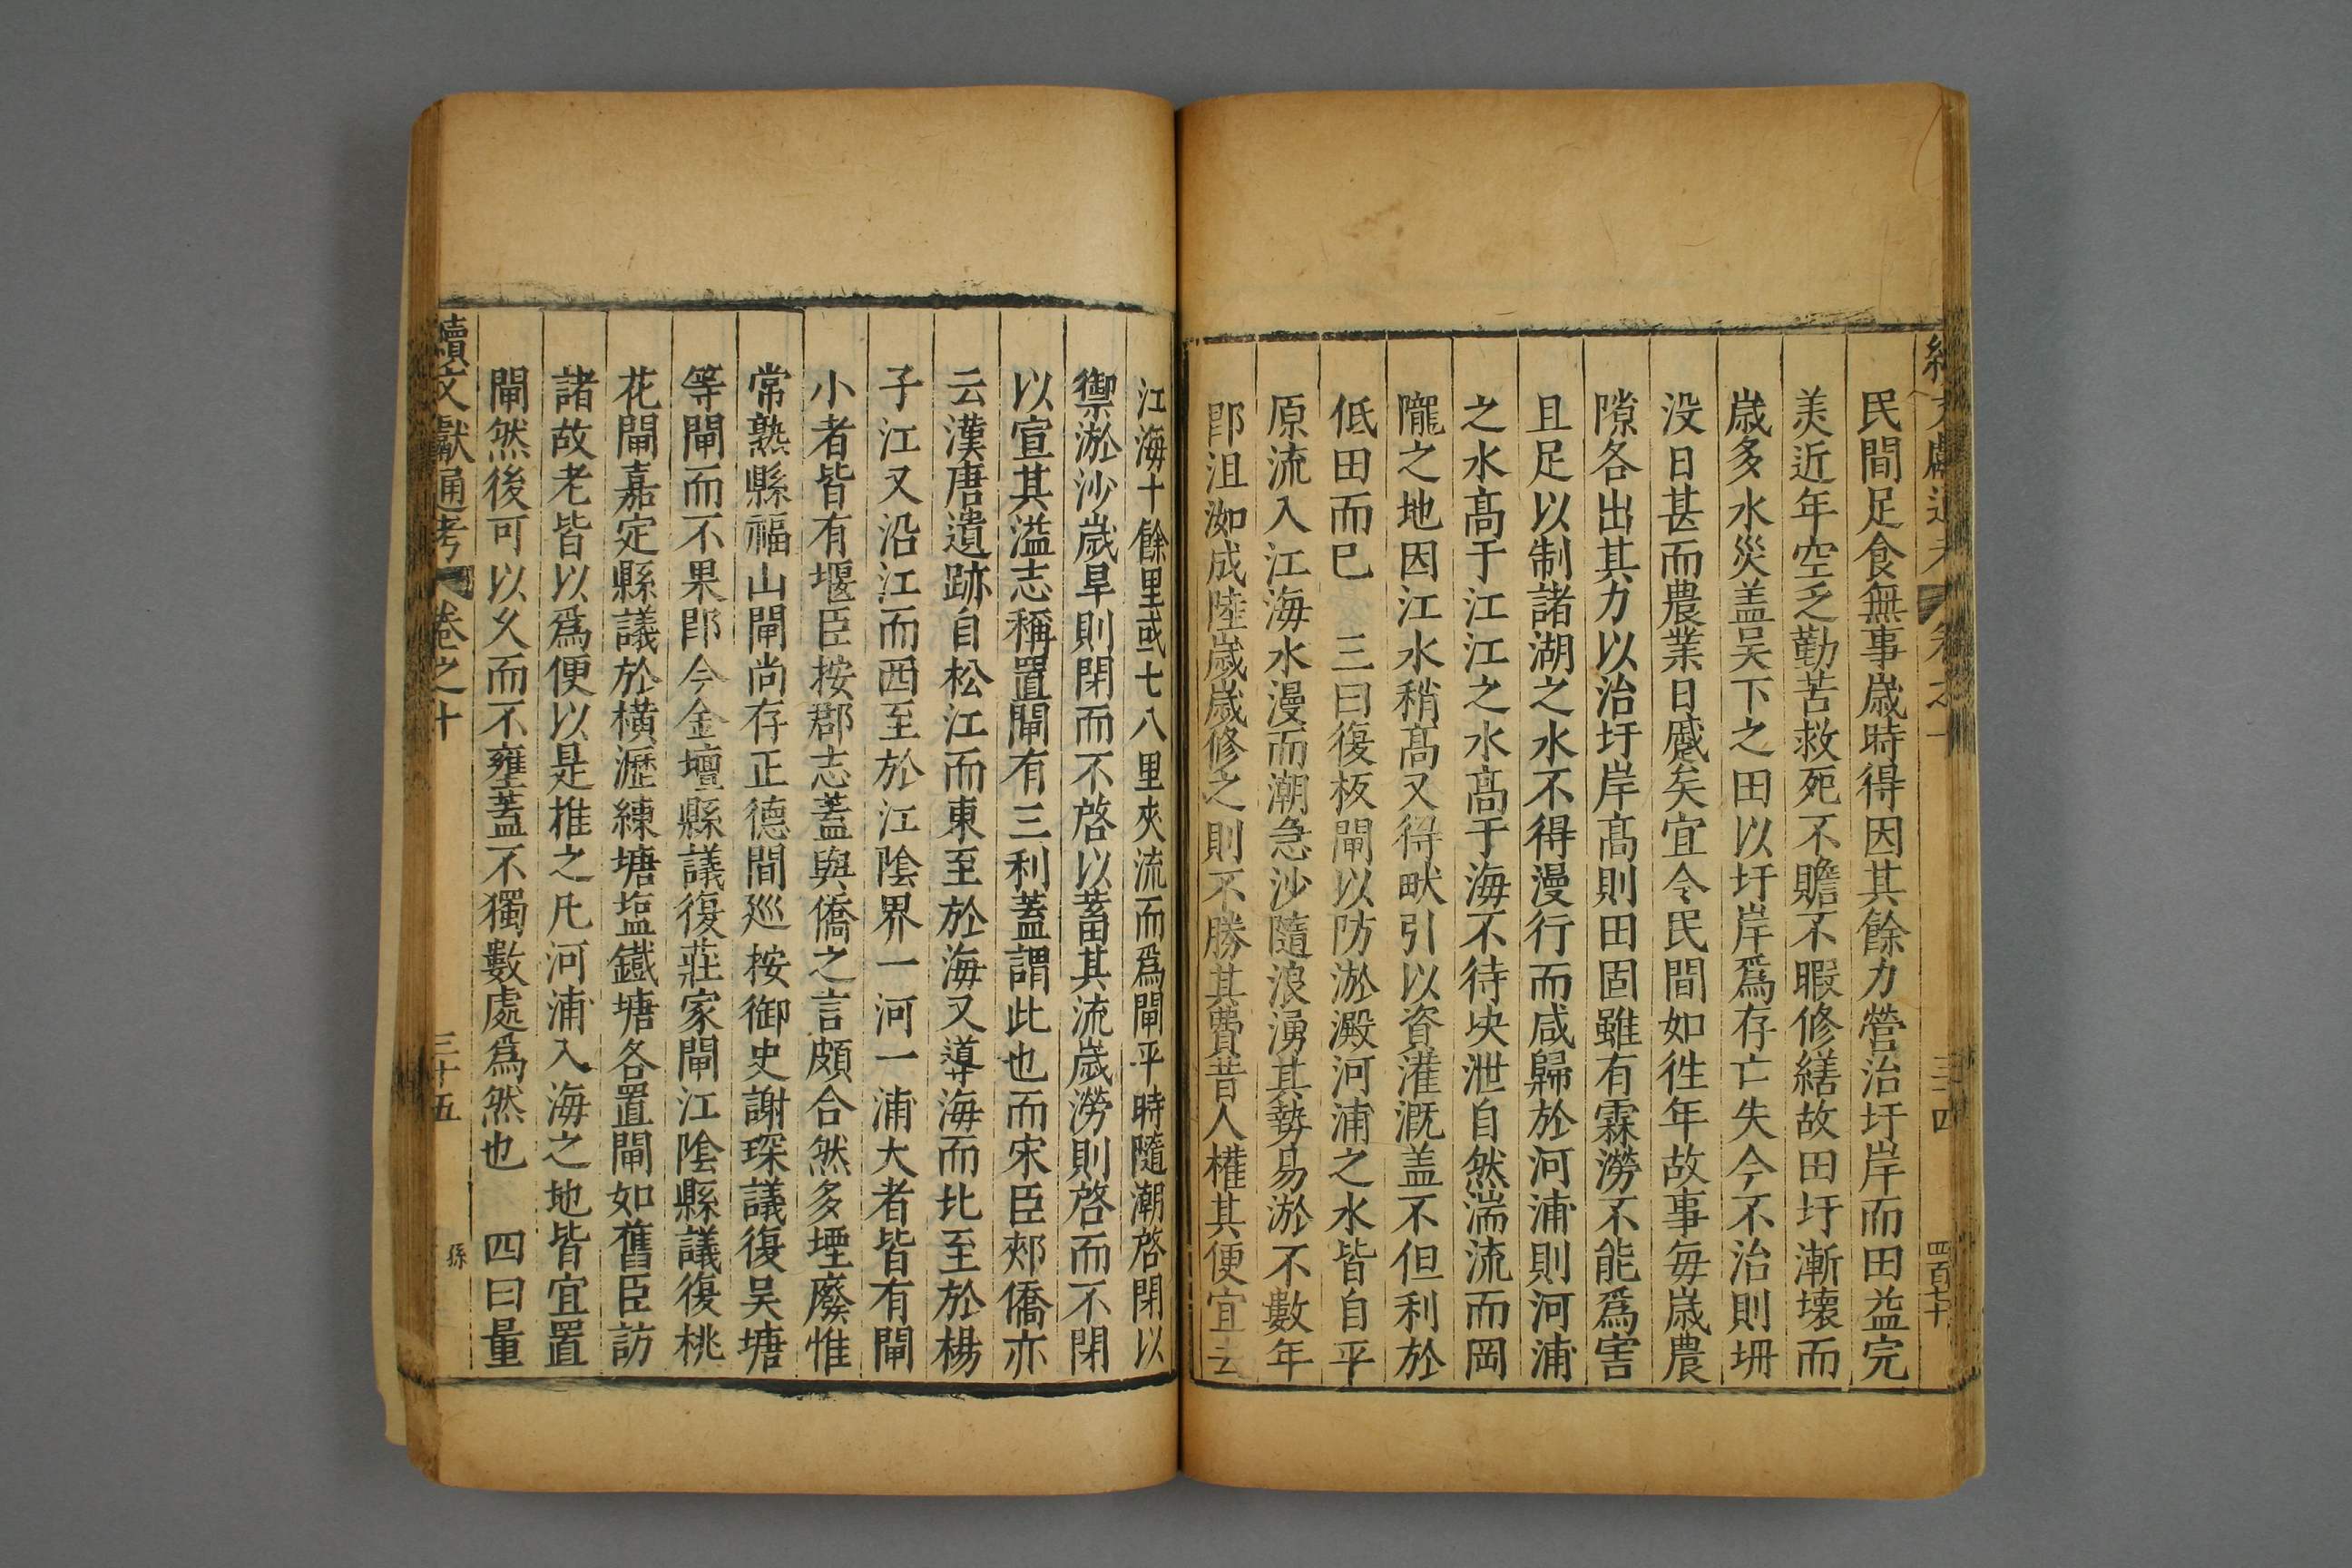 民間足食無事歲時得因其餘力營治圩岸而田益完
美近年空乏勤苦救死不贍不暇修繕故田圩漸壞而
歲多水災盖吴下之田以圩岸爲存亡失今不治則坍
没日甚而農業日蹙矣宜令民間如徃年故事每歲農
隙各出其力以治圩岸髙則田固雖有霖澇不能爲害
且足以制諸湖之水不得漫行而咸歸於河浦則河浦
之水髙于江江之水髙于海不待决泄自然湍流而岡
隴之地因江水稍髙又得畎引以資灌溉盖不但利於
低田而巳　三曰復板閘以防淤澱河浦之水皆自平
原流入江海水漫而潮急沙隨浪湧其勢易淤不數年
即沮洳成陸歲歲修之則不勝其費昔人權其便宜去
江海十餘里或七八里夾流而爲閘平時隨潮啓閉以
禦淤沙歲旱則閉而不啓以蓄其流歲澇則啓而不閉
以宣其溢志稱置閘有三利蓋謂此也而宋臣郟僑亦
云漢唐遺跡自松江而東至於海又導海而北至於楊
子江又沿江而西至於江陰界一河一浦大者皆有閘
小者皆有堰臣按郡志蓋與僑之言頗合然多堙廢惟
常熟縣福山閘尚存正德間廵按御史謝琛議復吴塘
等閘而不果即今金壇縣議復莊家閘江陰縣議復桃
花閘嘉定縣議於橫瀝練塘塩鐵塘各置閘如舊臣訪
諸故老皆以爲便以是推之凡河浦入海之地皆宜置
閘然後可以久而不壅蓋不獨數處爲然也　四曰量
續文獻通考　卷之十　三十五　孫